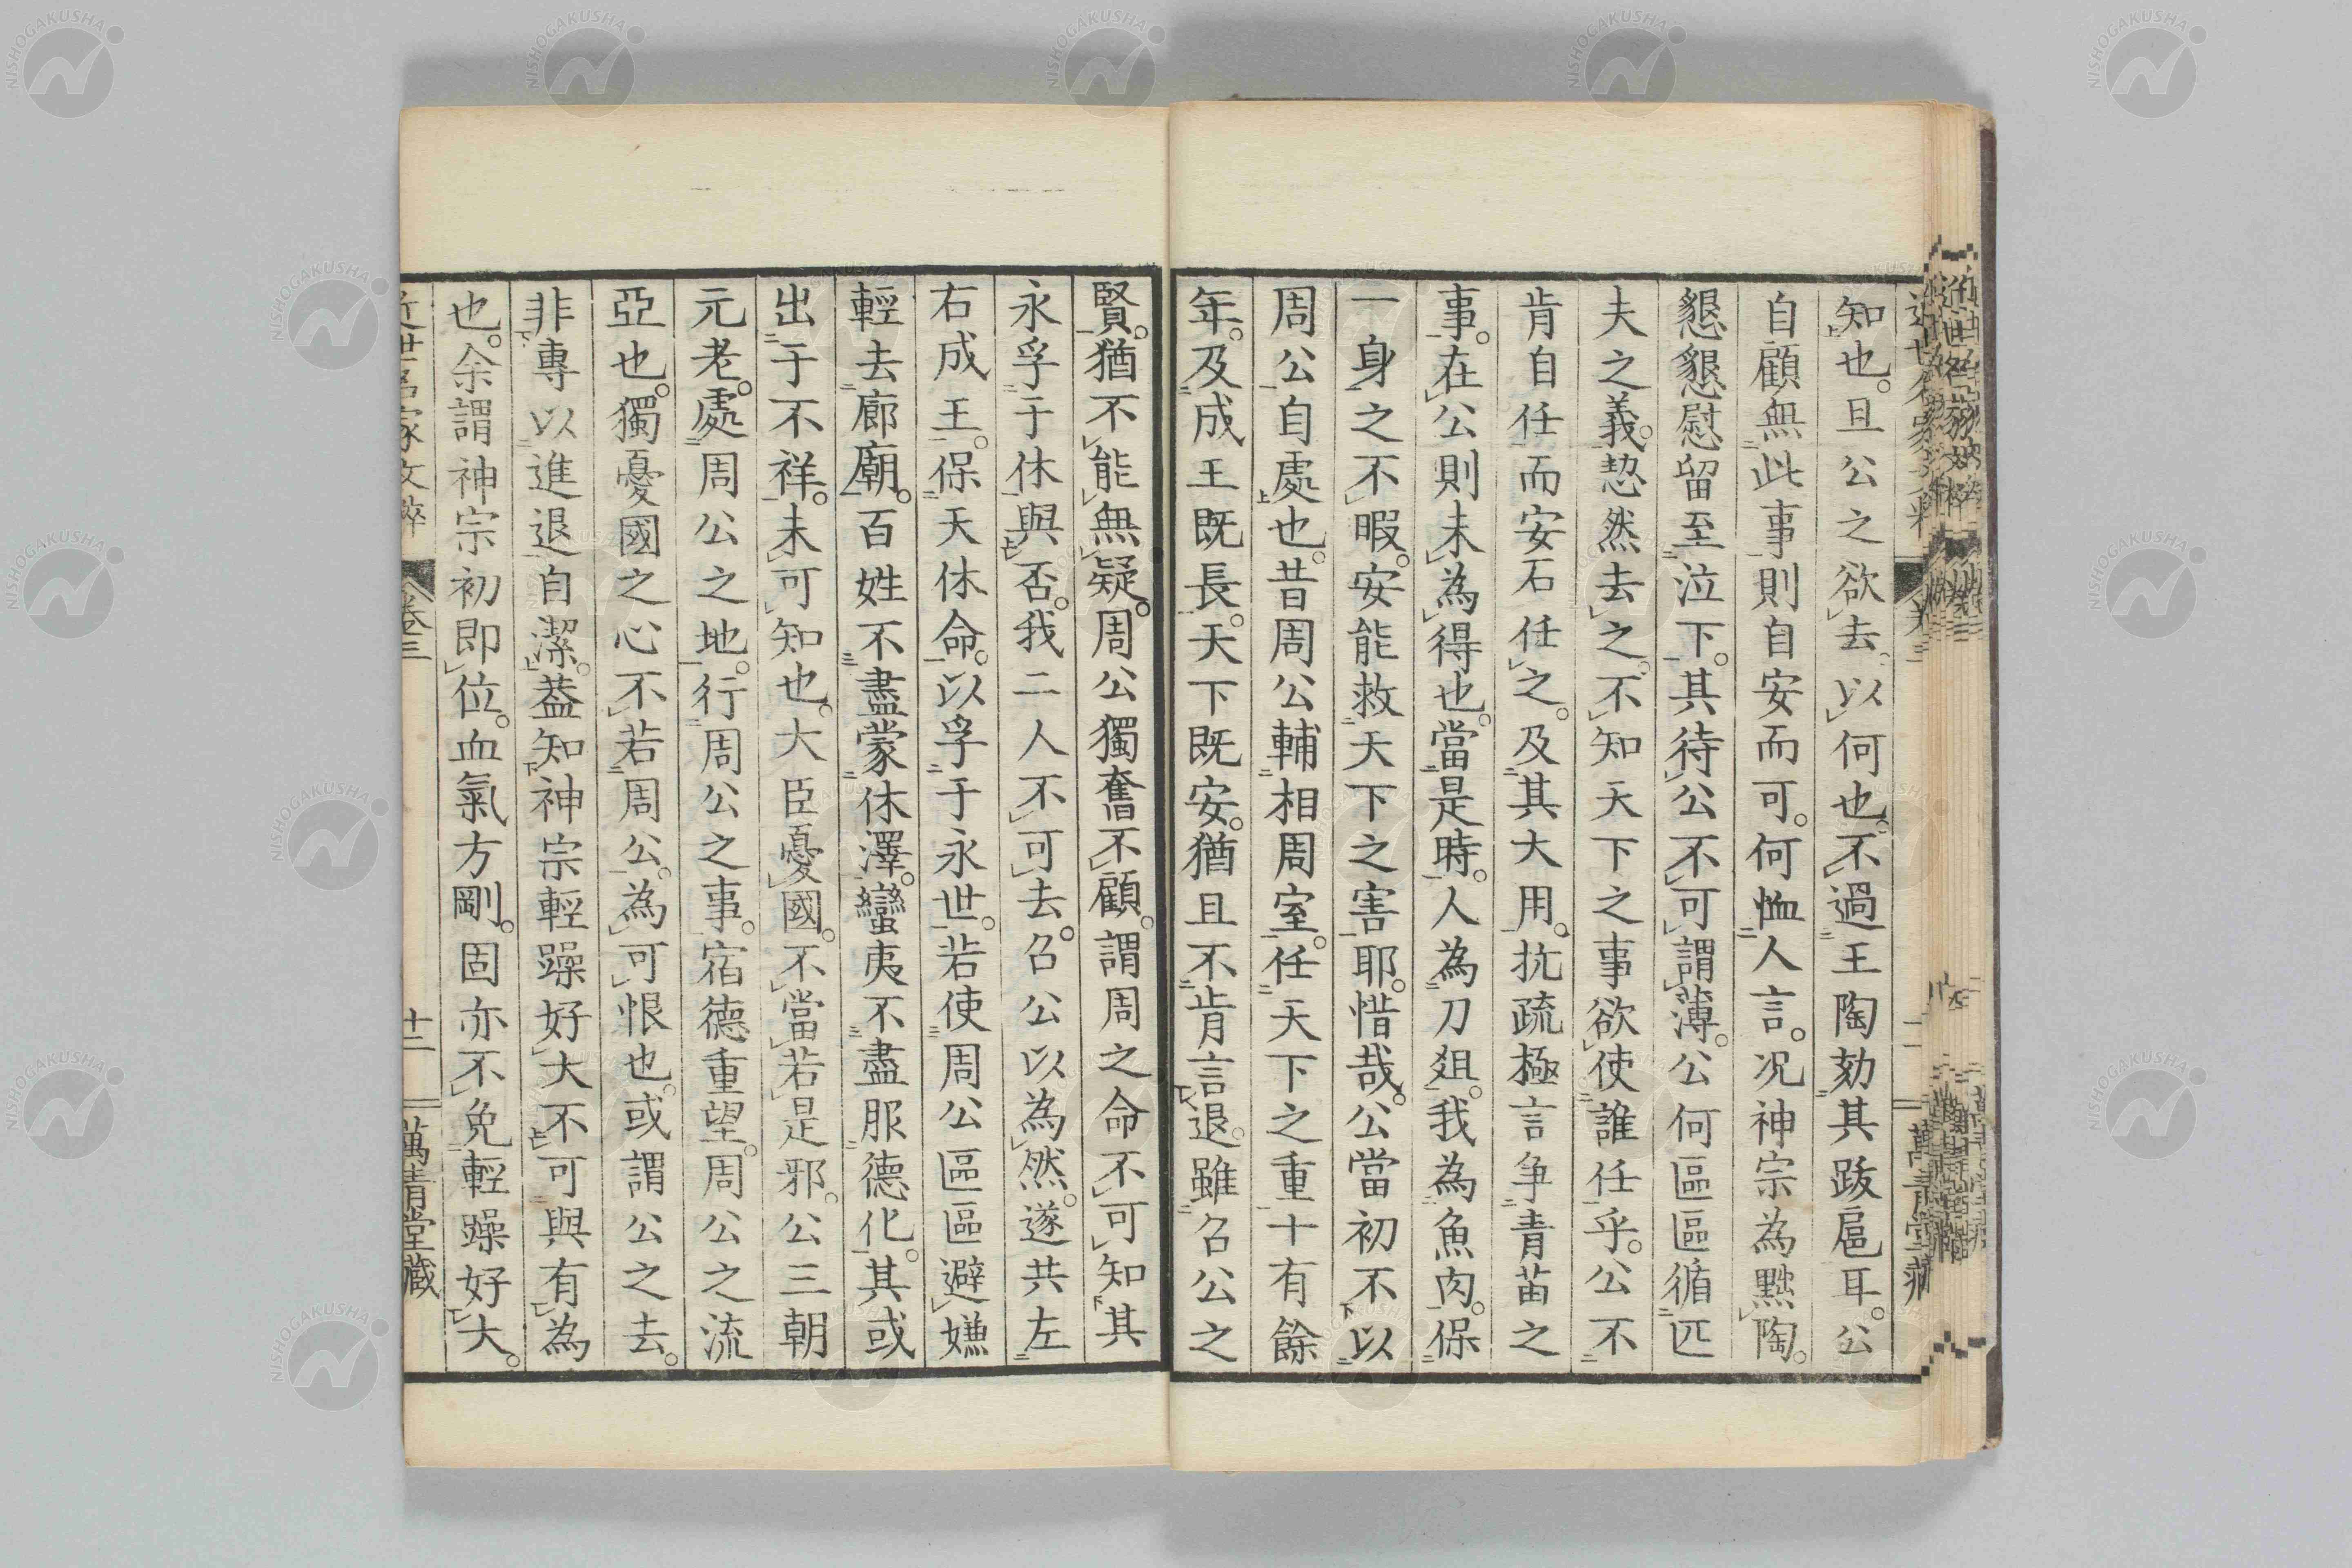 知也。且公之欲去。以何也。不過王陶劾其跋扈耳。公
自顧無此事。則自安而可。何恤人言。况神宗為黜陶。
懇懇慰留至泣下。其待公不可謂薄。公何區區循匹
夫之義。恝然去之。不知天下之事欲使誰任乎。公不
肯自任而安石任之。及其大用。抗疏極言争青苗之
事。在公則未為得也。當是時。人為刀俎。我為魚肉。保
一身之不暇。安能救天下之害耶。惜哉。公當初不以
周公自處也。昔周公輔相周室。任天下之重十有餘
年。及成王既長。天下既安。猶且不肯言退。雖召公之
賢。猶不能無疑。周公獨奮不顧。謂周之命不可知其
永孚于休與否。我二人不可去。召公以為然。遂共左
右成王。保天休命。以孚于永世。若使周公區區避嫌
輕去廊廟。百姓不盡蒙休澤。蠻夷不盡服德化。其或
出于不祥。未可知也。大臣憂國。不當若是邪。公三朝
元老。處周公之地。行周公之事。宿德重望。周公之流
亞也。獨憂國之心不若周公。為可恨也。或謂公之去。
非專以進退自潔。葢知神宗輕躁好大不可與有為
也。余謂神宗初即位。血氣方剛。固亦不免輕躁好大。
近世名家文粹 卷三 十二 萬青堂藏